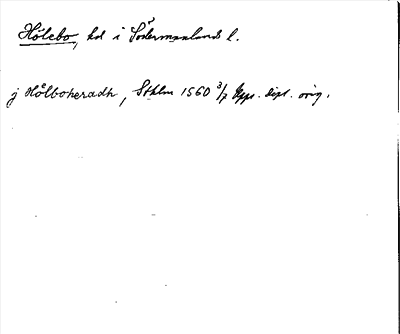 Hölebo, hd i Södermanlands l.
j Hölboheradh, Sthlm 1560 3/7 Upps. dipl. orig.